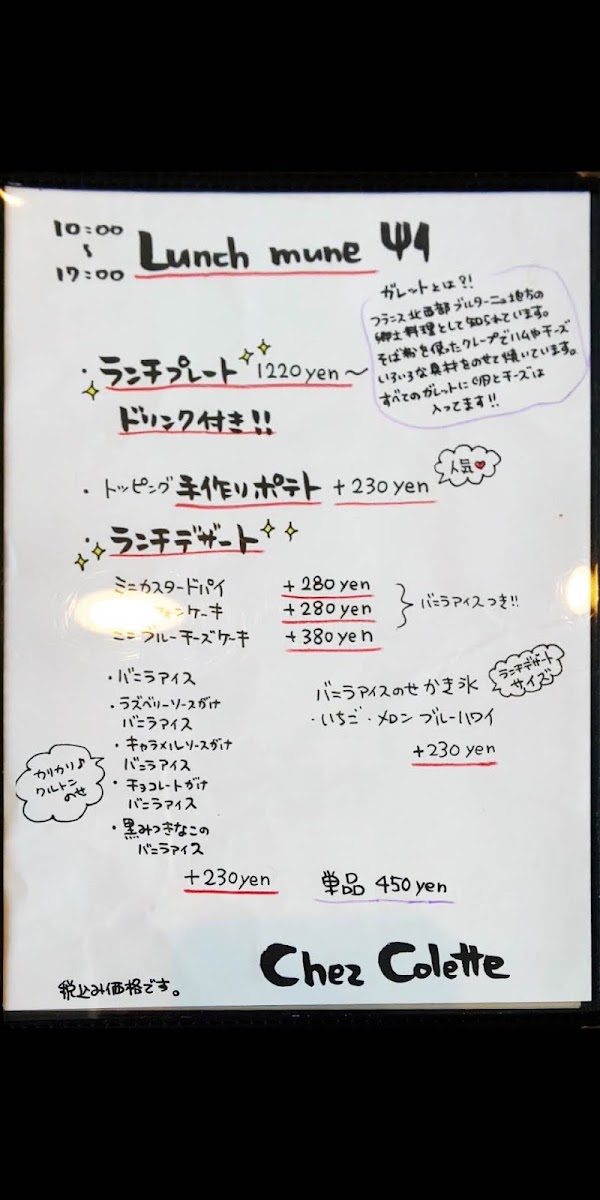 10:00
〜
17:00
Lunch mune
ガレットとは?!
フランス北西部ブルターニュ地方の
郷土料理として知られています。
そば粉を使ったクレープでハムやチーズ
いろいろな具材をのせて焼いています。
すべてのガレットに卵とチーズは
入ってます!!
・ランチプレート 1220yen〜
ドリンク付き!!
・トッピング手作りポテト +230yen
人気
・ランチデザート
ミニカスタードパイ +280yen
フォンケーキ +280yen
ミニブルーチーズケーキ +380yen
バニラアイスつき!!
・バニラアイス
・ラズベリーソースがけ
バニラアイス
・キャラメルソースがけ
バニラアイス
・チョコレートがけ
バニラアイス
・黒みつきなこの
バニラアイス
+230yen
カリカリ♪
クルトン
のせ
ランチデザート
サイズ
バニラアイスのせ かき氷
・いちご・メロン ブルーハワイ
+230yen
単品 450yen
Chez Colette
税込み価格です。